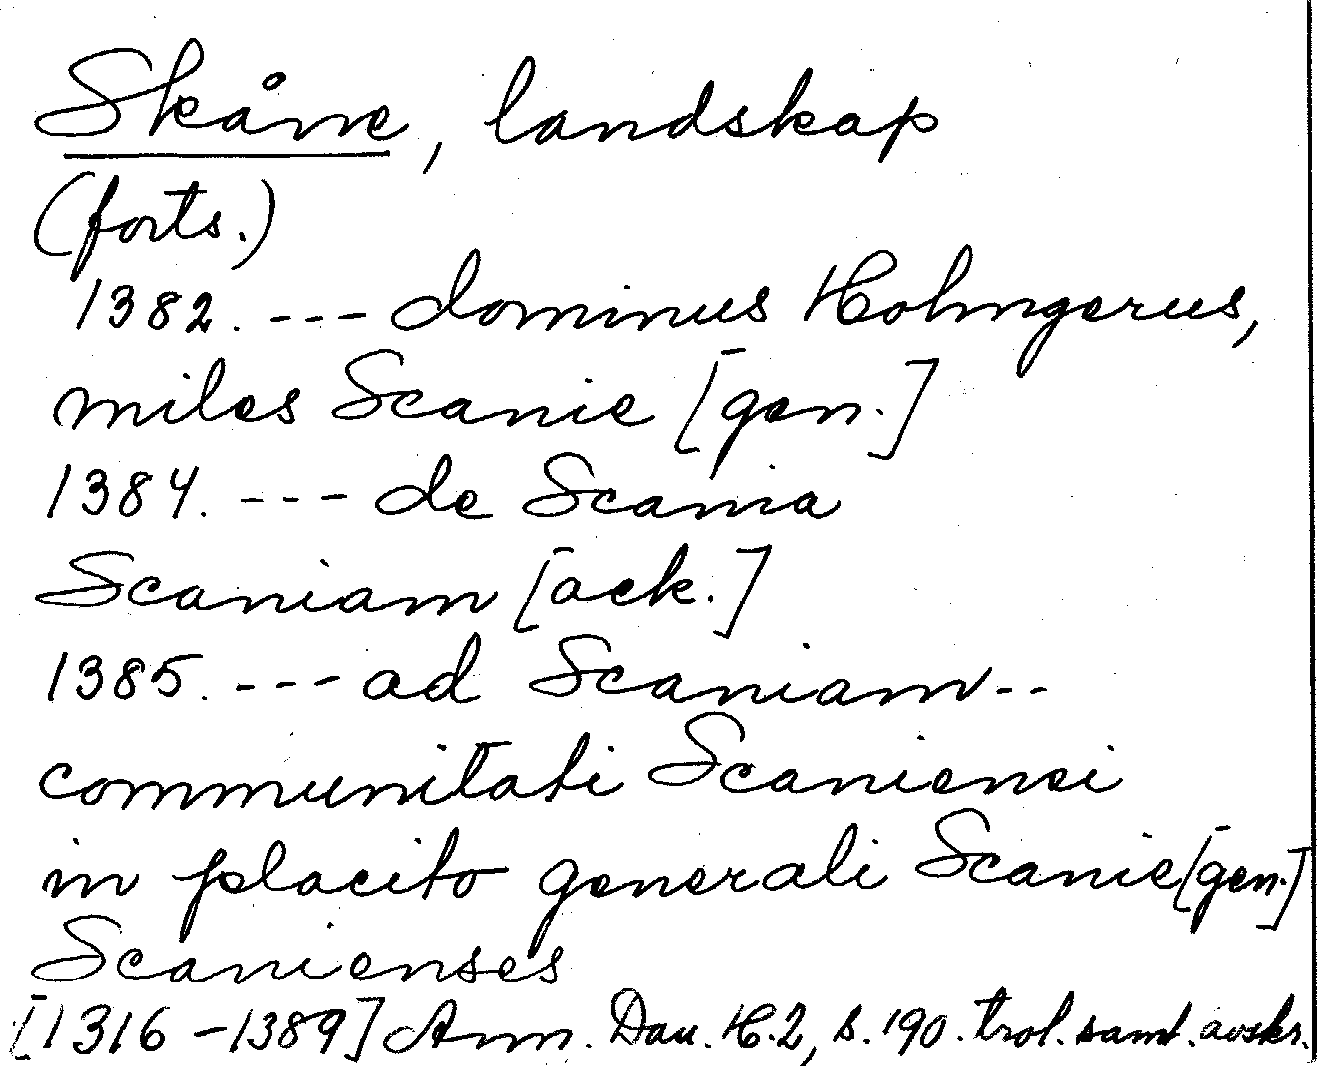 Skåne, landskap
(forts.)
1382. --- dominus Holmgerus,
miles Scanie [gen.]
1384. --- de Scania
Scaniam [ack.]
1385. --- ad Scaniam --
communitati Scaniensi
in placito generali Scanie [gen.]
Scanienses
[1316-1389] Ann. Dan. H. 2, s. 190. trol. samt. avskr.